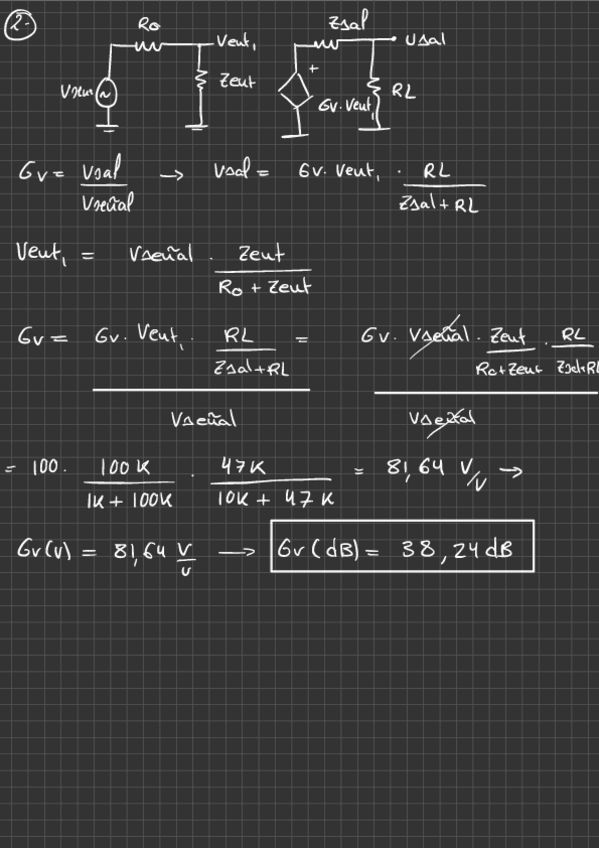 2.-
Ro Zsal
Vent₁ Vsal
Zent RL
+
Gv. Vent₁
Gv = Vsal / Vseñal → Vsal = Gv. Vent₁ · RL / Zsal + RL
Vent₁ = Vseñal · Zent / Ro + Zent
Gv = Gv. Vent₁ · RL / Zsal+RL / Vseñal = Gv. Vseñal · Zent / Ro+Zent · RL / Zsal+RL / Vseñal
= 100 · 100K / 1K + 100K · 47K / 10K + 47K = 81,64 V/V →
Gv(v) = 81,64 V/v → Gv (dB) = 38,24 dB